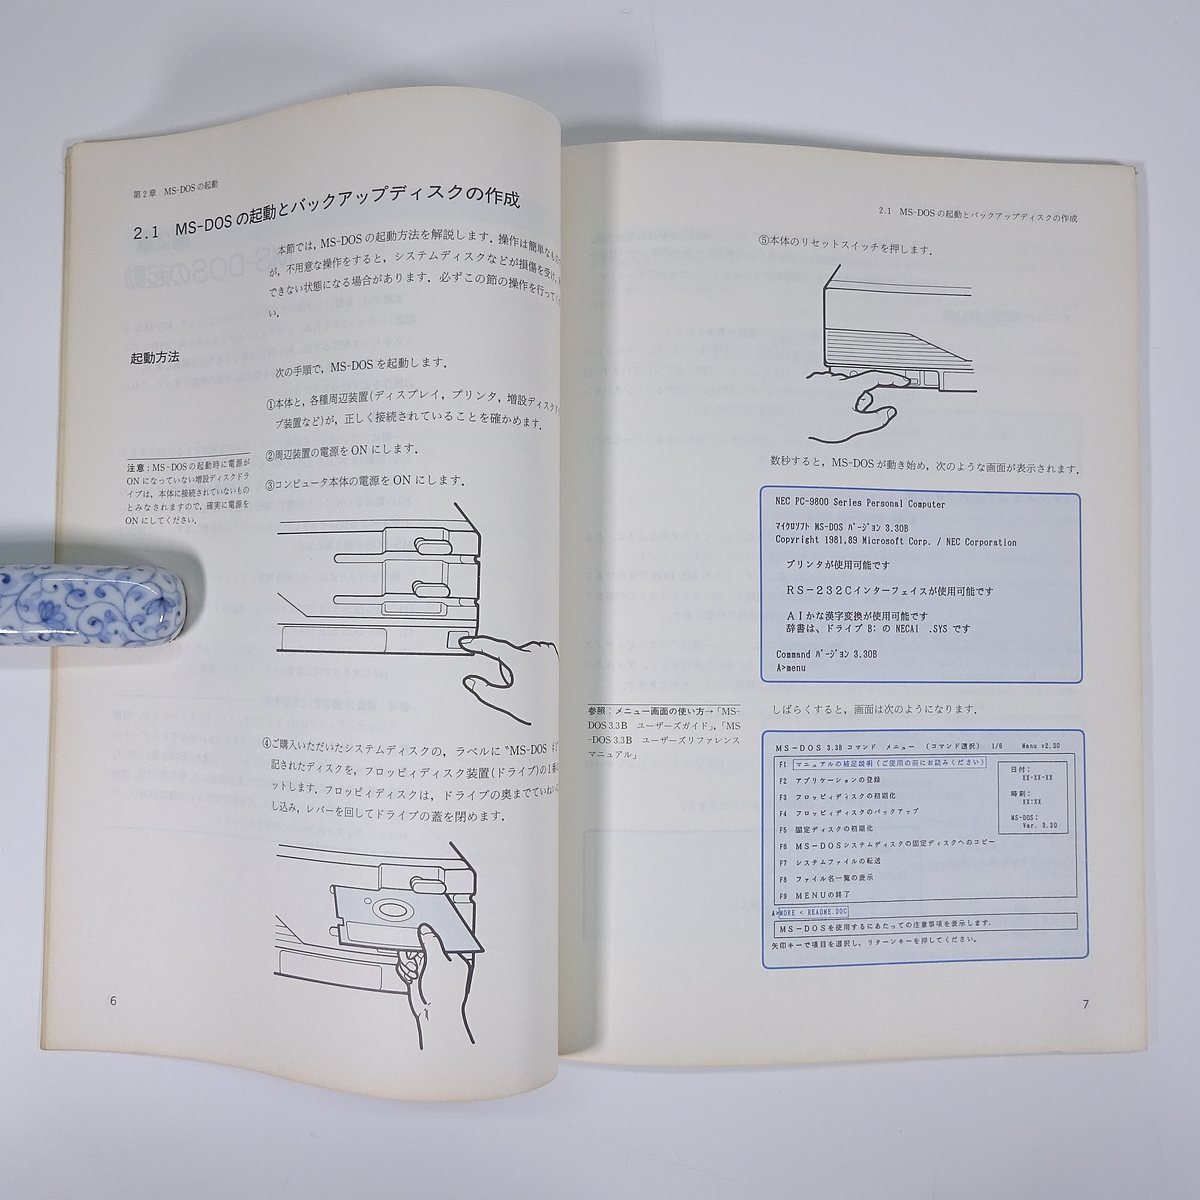 第2章 MS-DOSの起動
2.1 MS-DOSの起動とバックアップディスクの作成
本節では，MS-DOSの起動方法を解説します．操作は簡単なもの
が，不用意な操作をすると，システムディスクなどが損傷を受け，
できない状態になる場合があります．必ずこの節の操作を行って
い．
起動方法
次の手順で，MS-DOSを起動します．
①本体と，各種周辺装置(ディスプレイ，プリンタ，増設ディスク
ブ装置など)が，正しく接続されていることを確かめます．
②周辺装置の電源をONにします．
③コンピュータ本体の電源をONにします．
注意：MS-DOSの起動時に電源が
ONになっていない増設ディスクドラ
イブは，本体に接続されていないもの
とみなされますので，確実に電源を
ONにしてください．
④ご購入いただいたシステムディスクの，ラベルに〝MS-DOS
記されたディスクを，フロッピィディスク装置(ドライブ)の1番
ットします．フロッピィディスクは，ドライブの奥までていねい
し込み，レバーを回してドライブの蓋を閉めます．
6
2.1 MS-DOSの起動とバックアップディスクの作成
⑤本体のリセットスイッチを押します．
数秒すると，MS-DOSが動き始め，次のような画面が表示されます．
NEC PC-9800 Series Personal Computer
マイクロソフト MS-DOS バージョン 3.30B
Copyright 1981,89 Microsoft Corp. / NEC Corporation
プリンタが使用可能です
RS-232Cインターフェイスが使用可能です
AIかな漢字変換が使用可能です
辞書は、ドライブ B: の NECAI .SYS です
Command バージョン 3.30B
A>menu
しばらくすると，画面は次のようになります．
参照：メニュー画面の使い方→「MS-
DOS 3.3B ユーザーズガイド」，「MS
-DOS 3.3B ユーザーズリファレンス
マニュアル」
MS-DOS 3.3B コマンド メニュー (コマンド選択) 1/6 Menu v2.30
F1 マニュアルの補足説明（ご使用の前にお読みください）
F2 アプリケーションの登録
F3 フロッピィディスクの初期化
F4 フロッピィディスクのバックアップ
F5 固定ディスクの初期化
F6 MS-DOSシステムディスクの固定ディスクへのコピー
F7 システムファイルの転送
F8 ファイル名一覧の表示
F9 MENUの終了
日付：
XX-XX-XX
時刻：
XX:XX
MS-DOS：
Ver. 3.30
A>MORE < README.DOC
MS-DOSを使用するにあたっての注意事項を表示します．
矢印キーで項目を選択し、リターンキーを押してください。
7